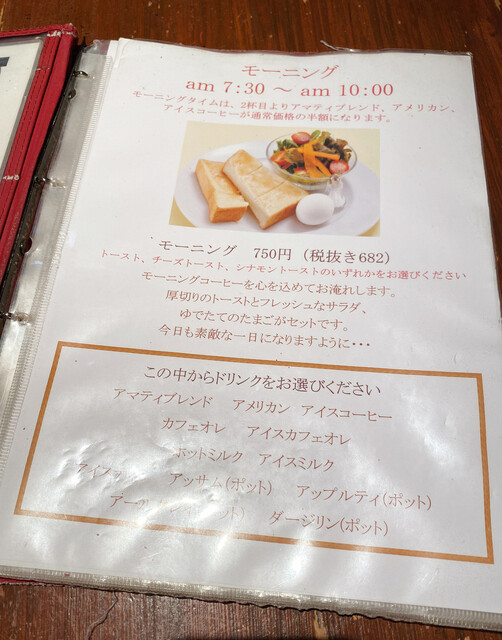 モーニング
am 7:30 ～ am 10:00
モーニングタイムは、2杯目よりアマティブレンド、アメリカン、
アイスコーヒーが通常価格の半額になります。
モーニング 750円 (税抜き682)
トースト、チーズトースト、シナモントーストのいずれかをお選びください
モーニングコーヒーを心を込めてお淹れします。
厚切りのトーストとフレッシュなサラダ、
ゆでたてのたまごがセットです。
今日も素敵な一日になりますように・・・
この中からドリンクをお選びください
アマティブレンド アメリカン アイスコーヒー
カフェオレ アイスカフェオレ
ホットミルク アイスミルク
アッサム(ポット) アップルティ(ポット)
ダージリン(ポット)